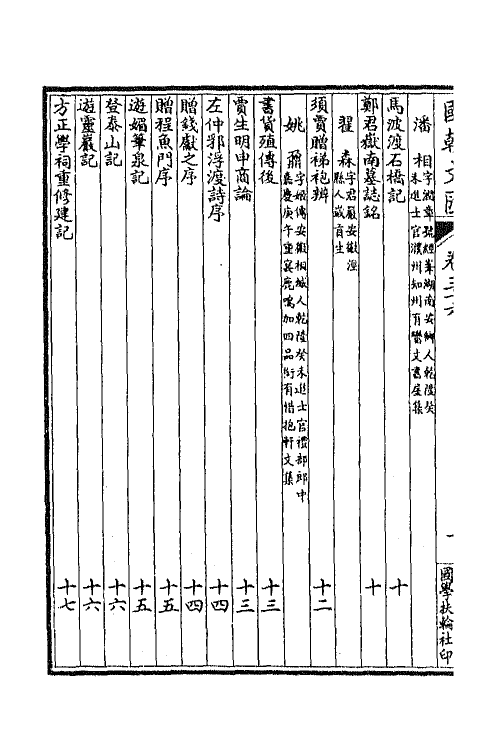 國朝文匯 卷三六 一 國學扶輪社印
潘 相 字潤章號經峯湖南安鄉人乾隆癸
未進士官濮州知州有矕文書屋集
馬波渡石橋記 十
鄭君嶽南墓誌銘 十
翟 森 字君嚴安徽涇
縣人歲貢生
須賈贈綈袍辨 十二
姚 鼐 字姬傳安徽桐城人乾隆癸未進士官禮部郎中
嘉慶庚午重宴鹿鳴加四品銜有惜抱軒文集
書貨殖傳後 十三
賈生明申商論 十三
左仲郛浮渡詩序 十四
贈錢獻之序 十四
贈程魚門序 十五
遊媚筆泉記 十五
登泰山記 十六
遊靈巖記 十六
方正學祠重修建記 十七